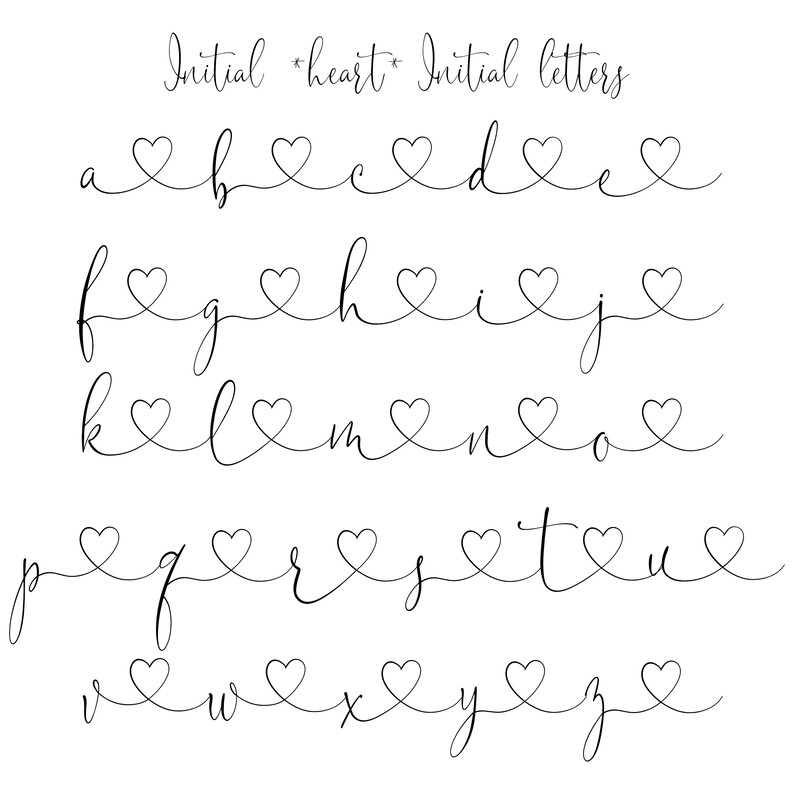 Initial *heart* Initial letters
a b c d e
f g h i j
k l m n o
p q r s t u
v w x y z